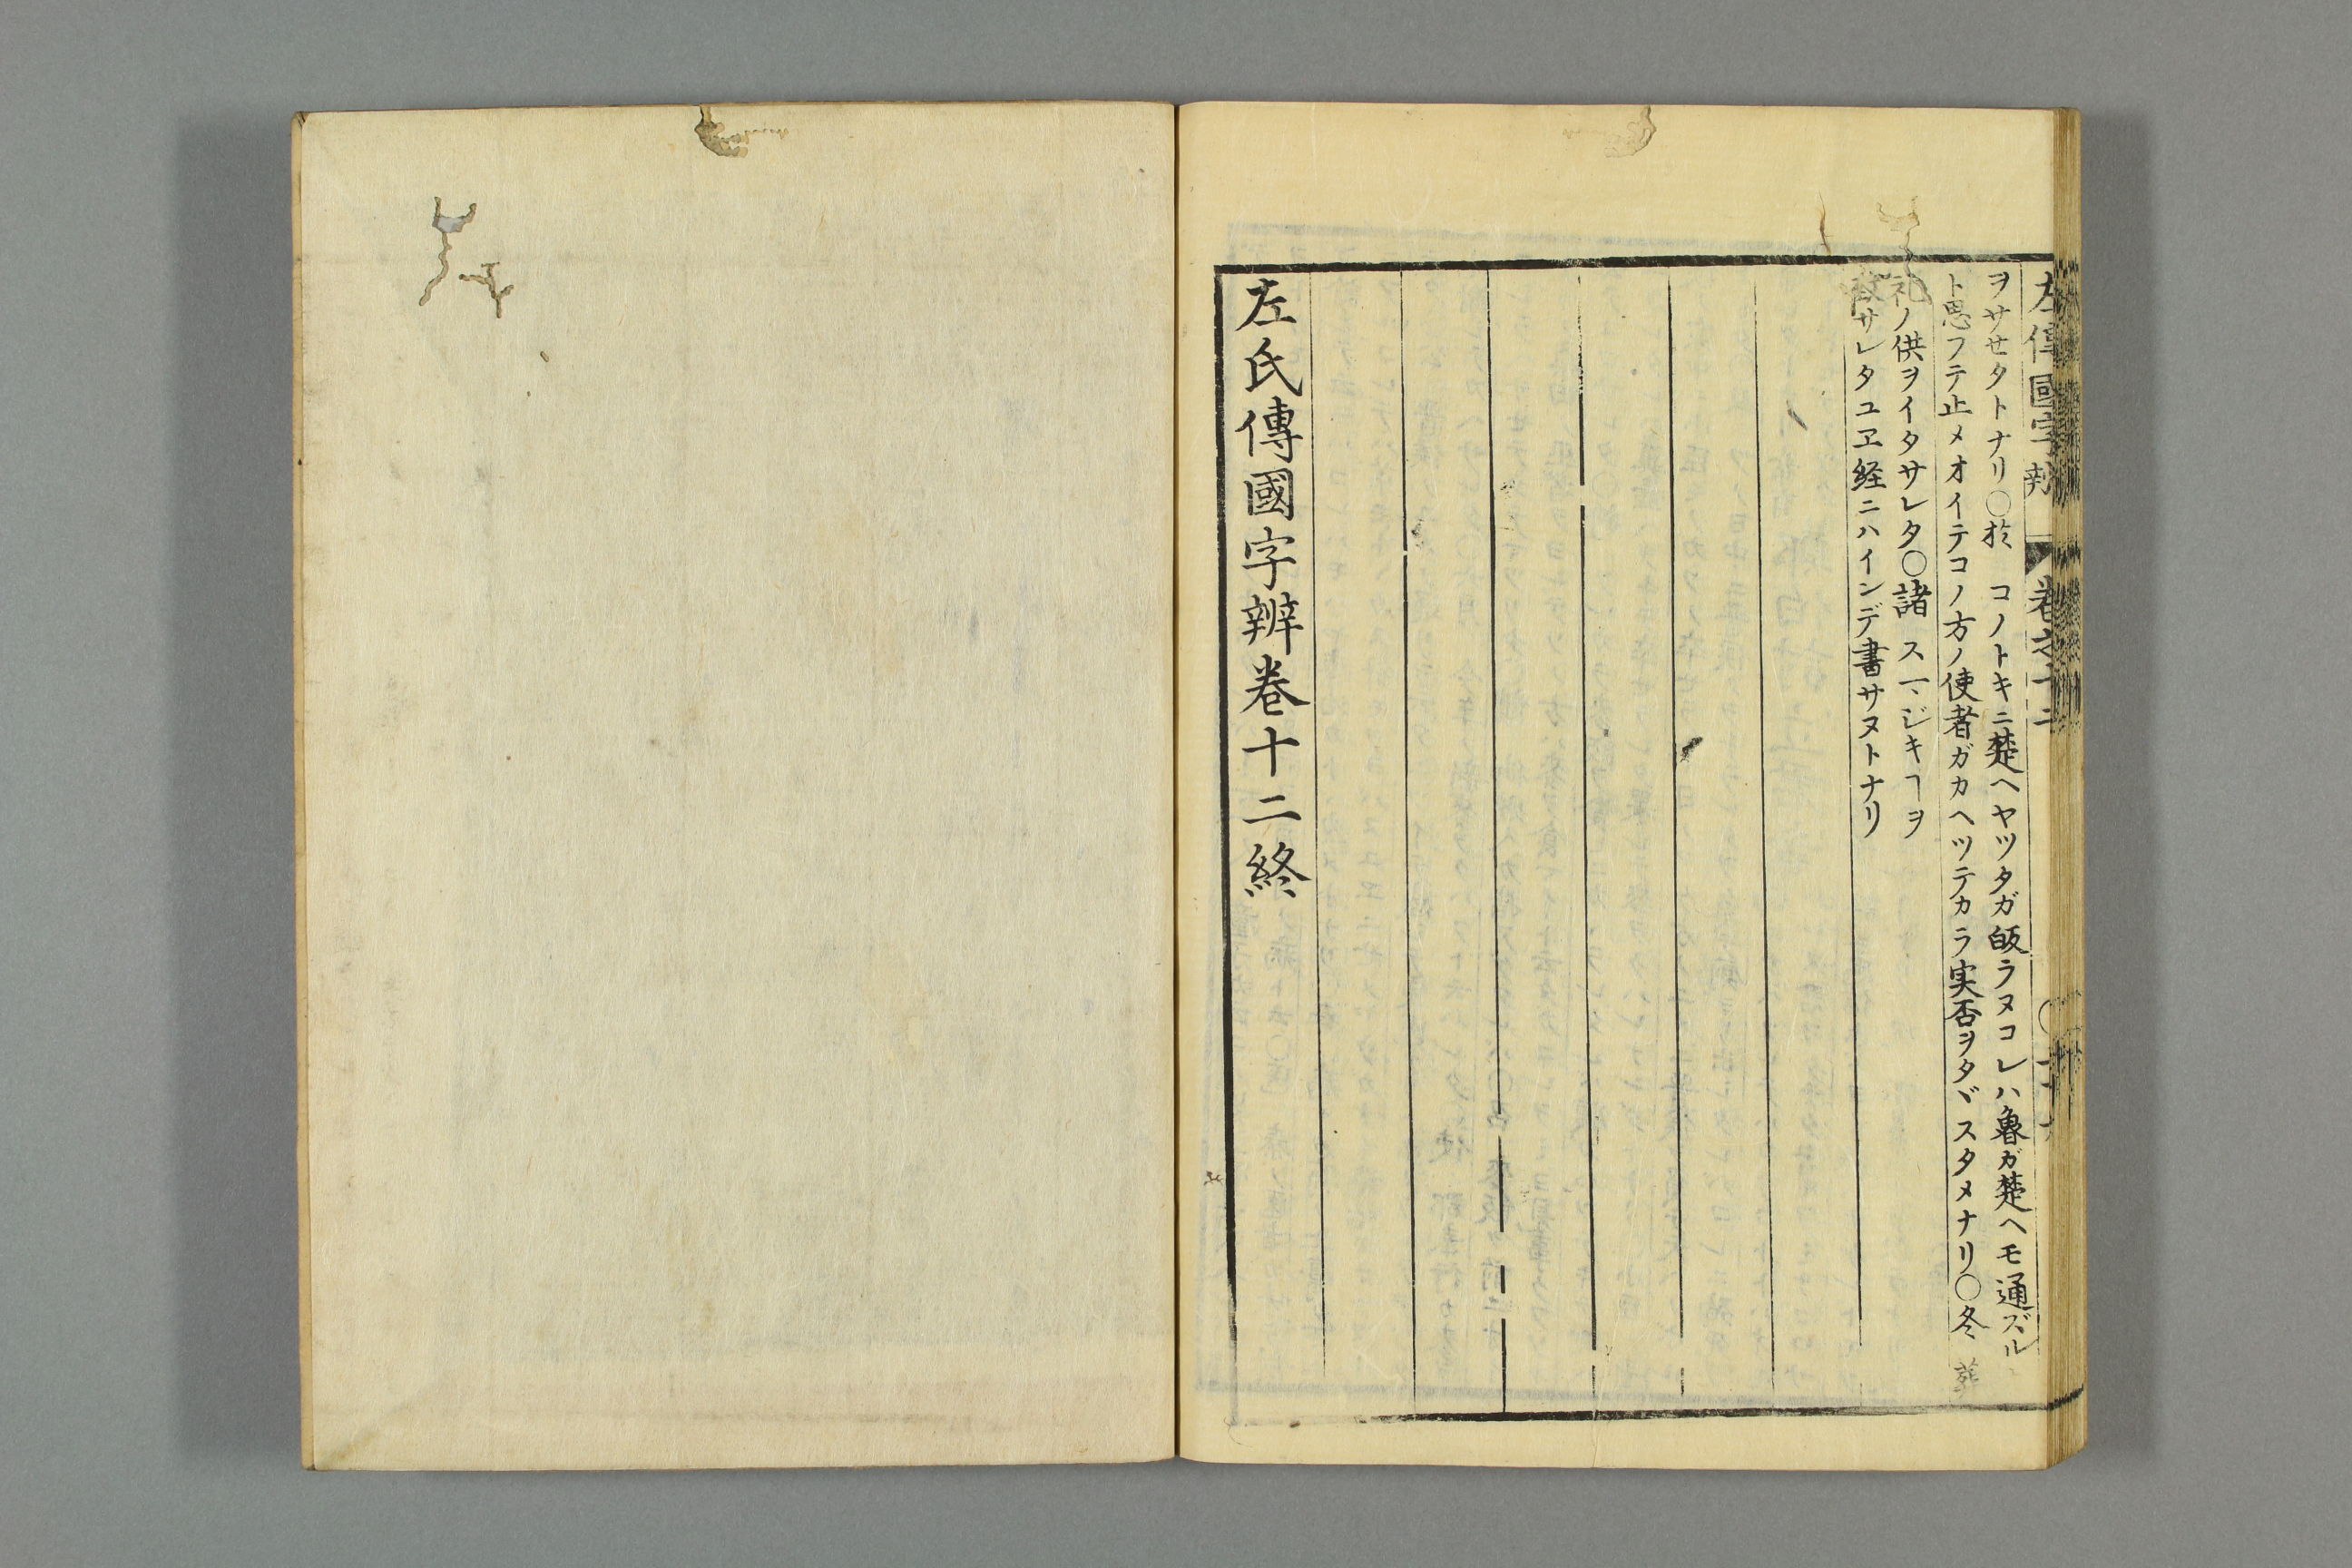 左傳國字辨 卷之十二
ヲサセタトナリ○於 コノトキニ楚ヘヤツタガ皈ラヌコレハ魯ガ楚ヘモ通ズル
ト思フテ止メオイテコノ方ノ使者ガカヘツテカラ実否ヲタヾスタメナリ○冬 葬
礼ノ供ヲイタサレタ○諸 スヘジキヿヲ
サレタユヱ経ニハインデ書サヌトナリ
左氏傳國字辨卷十二終